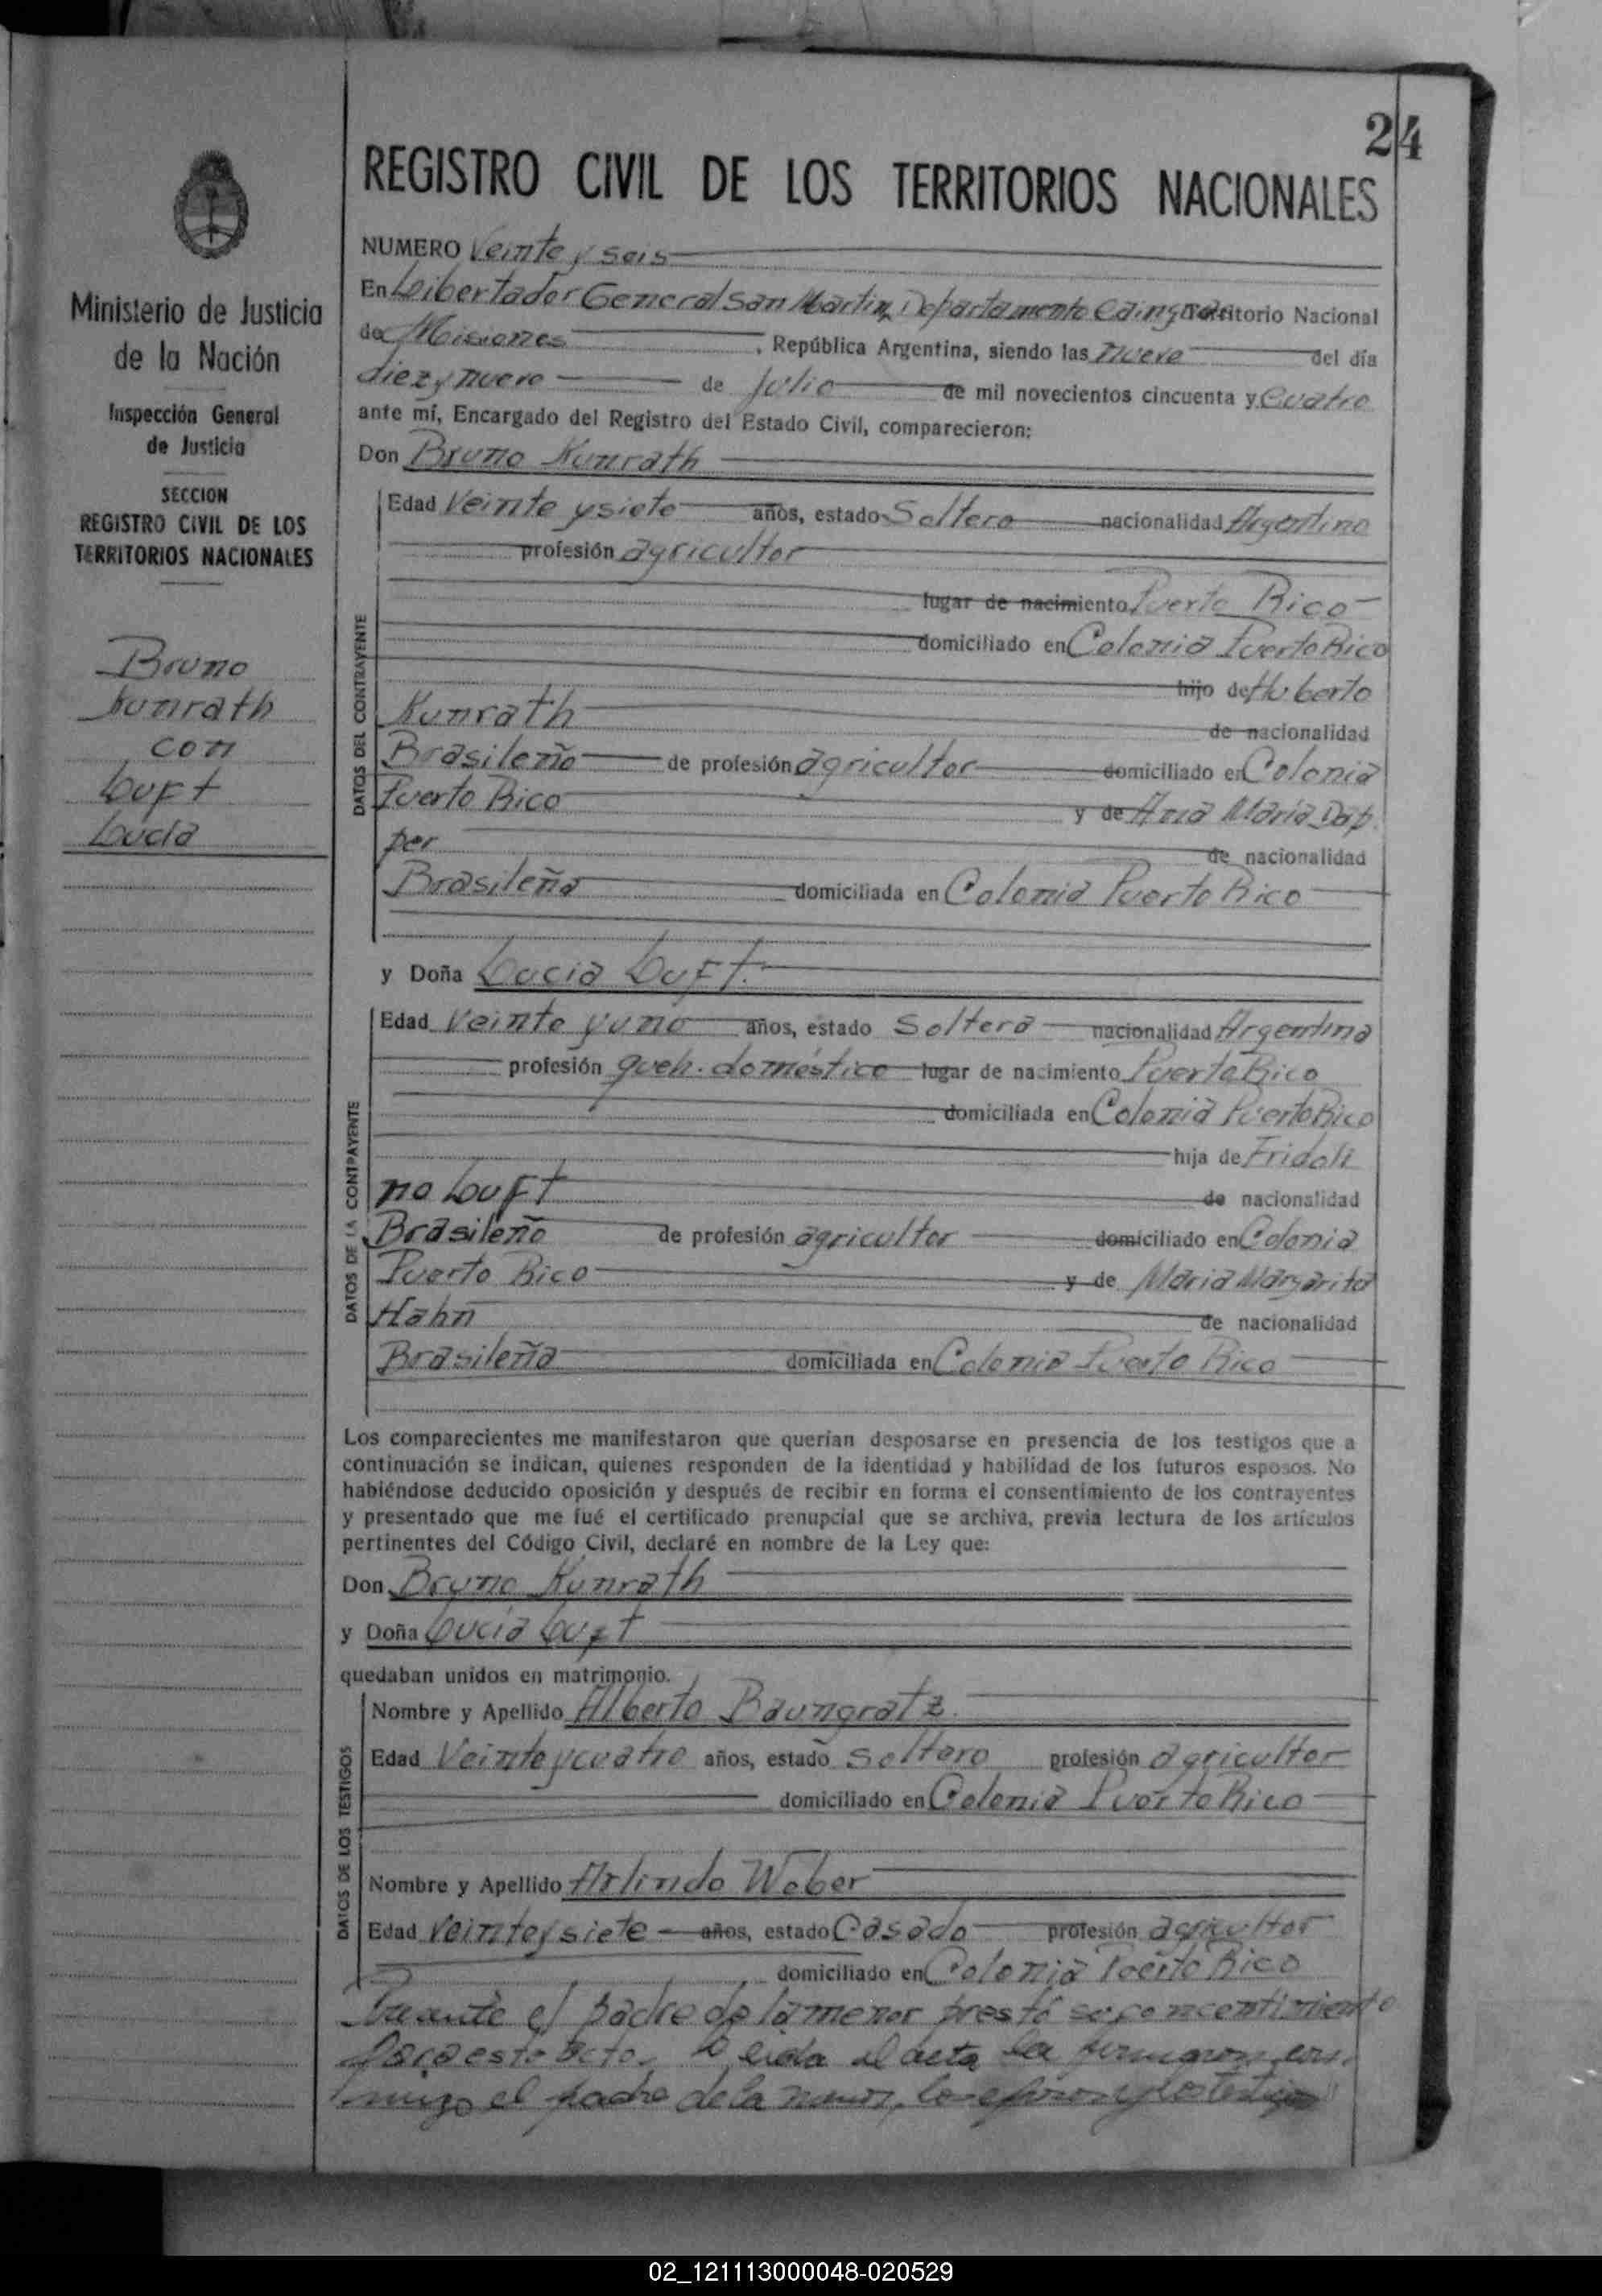 24
REGISTRO CIVIL DE LOS TERRITORIOS NACIONALES
Ministerio de Justicia
de la Nación
Inspección General
de Justicia
SECCION
REGISTRO CIVIL DE LOS
TERRITORIOS NACIONALES
Bruno
Kunrath
con
Luft
Lucia
NUMERO Veinte y seis
En Libertador General San Martin, Departamento Cainguas Territorio Nacional
de Misiones, República Argentina, siendo las nueve del día
diez y nueve de Julio de mil novecientos cincuenta y Cuatro
ante mí, Encargado del Registro del Estado Civil, comparecieron:
Don Bruno Kunrath
DATOS DEL CONTRAYENTE
Edad Veinte y siete años, estado Soltero nacionalidad Argentino
profesión agricultor
lugar de nacimiento Puerto Rico
domiciliado en Colonia Puerto Rico
hijo de Huberto
Kunrath de nacionalidad
Brasileño de profesión agricultor domiciliado en Colonia
Puerto Rico y de Ana María Dap
per de nacionalidad
Brasileña domiciliada en Colonia Puerto Rico
y Doña Lucia Luft.
DATOS DE LA CONTRAYENTE
Edad Veinte y uno años, estado Soltera nacionalidad Argentina
profesión queh. doméstico lugar de nacimiento Puerto Rico
domiciliada en Colonia Puerto Rico
hija de Fridoli
no Luft de nacionalidad
Brasileño de profesión agricultor domiciliado en Colonia
Puerto Rico y de Maria Margarita
Hahn de nacionalidad
Brasileña domiciliada en Colonia Puerto Rico
Los comparecientes me manifestaron que querían desposarse en presencia de los testigos que a
continuación se indican, quienes responden de la identidad y habilidad de los futuros esposos. No
habiéndose deducido oposición y después de recibir en forma el consentimiento de los contrayentes
y presentado que me fué el certificado prenupcial que se archiva, previa lectura de los artículos
pertinentes del Código Civil, declaré en nombre de la Ley que:
Don Bruno Kunrath
y Doña Lucia Luft
quedaban unidos en matrimonio.
DATOS DE LOS TESTIGOS
Nombre y Apellido Alberto Baungratz.
Edad Veinte y cuatro años, estado soltero profesión agricultor
domiciliado en Colonia Puerto Rico
Nombre y Apellido Arlindo Weber
Edad Veinte y siete años, estado Casado profesión agricultor
domiciliado en Colonia Puerto Rico
el padre de la menor prestó su concentimiento
para este acto. Leida el acta la firmaron con
migo el padre de la menor, los esposos y los testigos
02_121113000048-020529